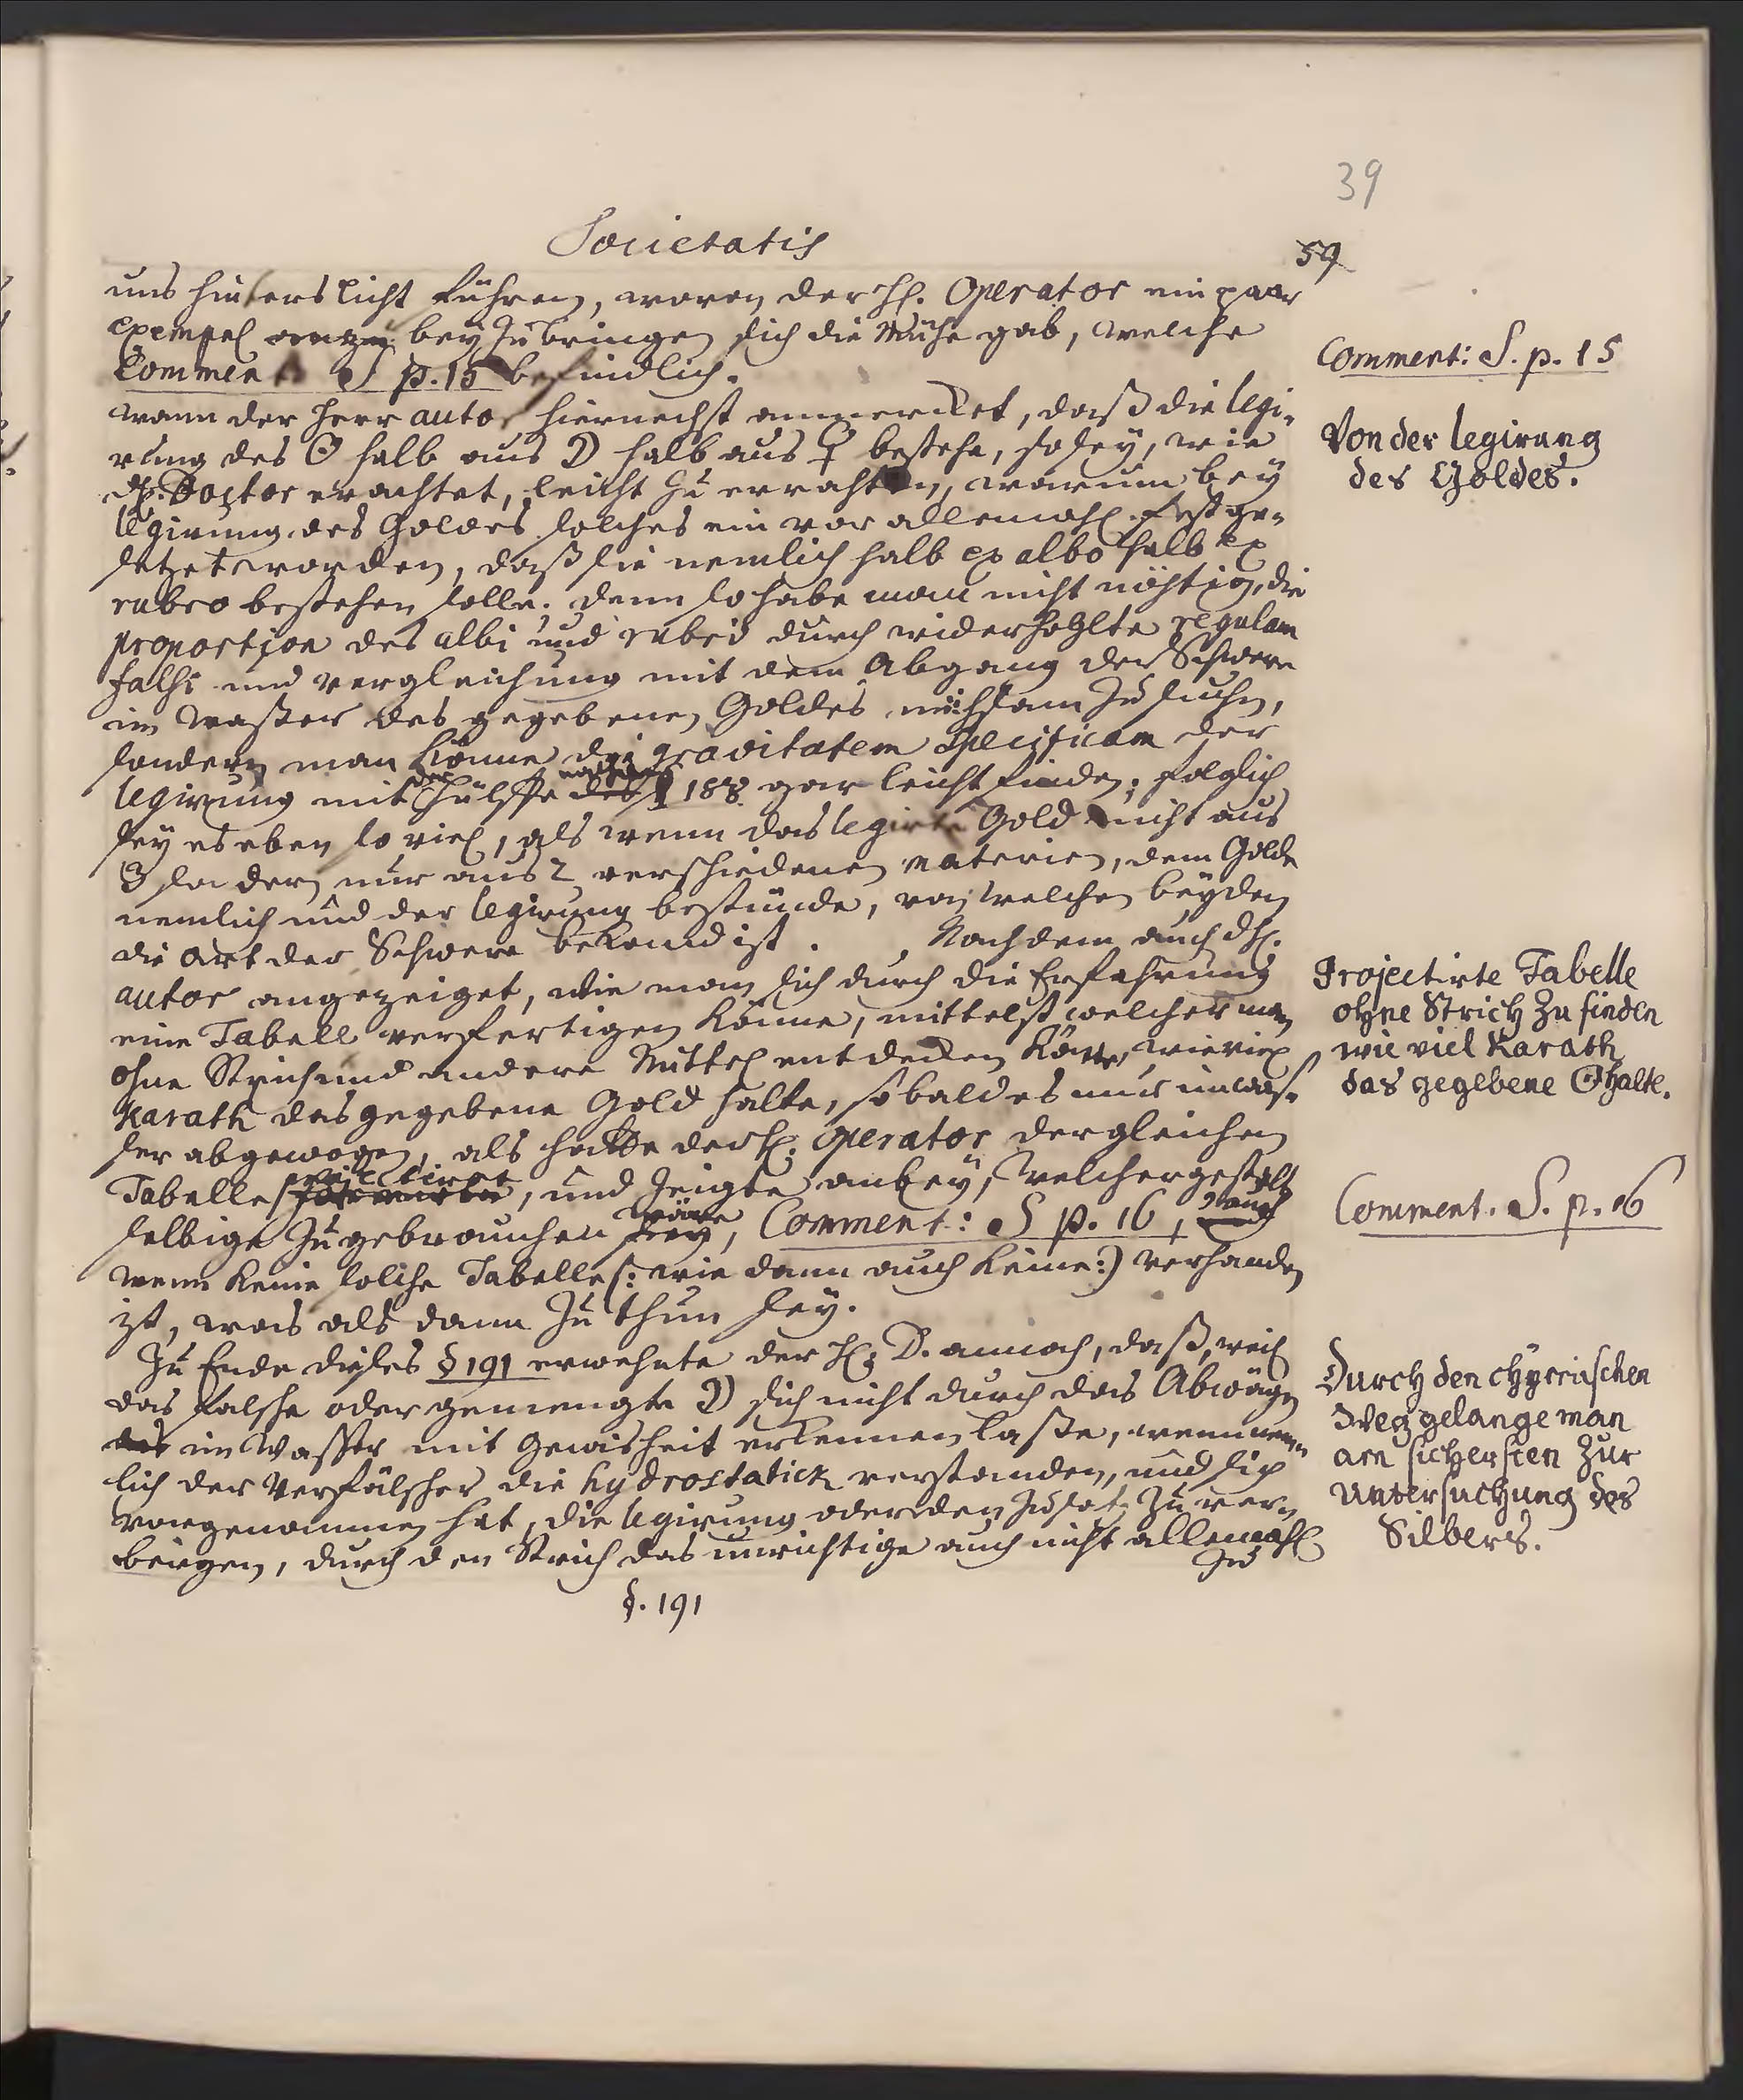 39
Societatis
59
uns hinters licht führen, wovon der H. Operator ein paar
exempel bey zu bringen sich die Mühe gab, welche
Comment S p. 15 befindlich.
Comment: S. p. 15
wann der Herr autor hiernechst anmercket, daß die legi-
rung des ☉ halb aus ☽ halb aus ♀ bestehe, so sey, wie
Von der legirung
des Goldes.
H. Doctor erachtet, leicht zu errathen, warum bey
legirung des Goldes solches ein vor allemahl festge-
setzet worden, daß sie nemlich halb ex albo halb ex
rubro bestehen solle. denn so habe man nicht nöhtig, die
proportion des albi und rubri durch widerhohlte regulam
falsi und vergleichung mit dem Abgang der Schwere
im waßer des gegebenen Goldes mühsam zu suchen,
sondern man könne die gravitatem specificam der
legirung mit der Hülffe des § 188 gar leicht finden; folglich
sey es eben so viel, als wenn das legirte Gold nicht aus
3 sondern nur aus 2 verschiedenen materien, dem Golde
nemlich und der legirung bestünde, von welchen beyden
die art der Schwere bekand ist. Nachdem auch dH.
autor angezeiget, wie man sich durch die Erfahrung
eine Tabell verfertigen könne, mittelst welcher man
ohne Strich und andere Mittel entdecken könte, wie viel
Karath das gegebene Gold halte, so bald es nur im was-
ser abgewogen, als hatte der H. Operator dergleichen
Projectirte Tabelle
ohne Strich zu finden
wie viel Karath
das gegebene ☉ halte.
Tabelle projectiret, und zeigte anbey, welchergestalt
selbige zu gebrauchen wäre, Comment: S p. 16, auch
Comment. S. p. 16
wenn keine solche Tabelle (: wie dann auch keine:) verhanden
ist, was als dann zu thun sey.
Zu Ende dieses § 191 erwehnte der H. D. annoch, daß, weil
das falsche oder gemengte ☽ sich nicht durch das Abwägen
das im Wasser mit Gewisheit erkennen laße, wenn nem-
lich der Verfälscher die hydrostatick verstanden, und sich
vorgenommen hat, die legirung oder den Zusatz zu ver-
bergen, durch den Strich das unrichtige auch nicht allemahl
zu
Durch den chymischen
Weg gelange man
am sichersten zur
Untersuchung des
Silbers.
§. 191